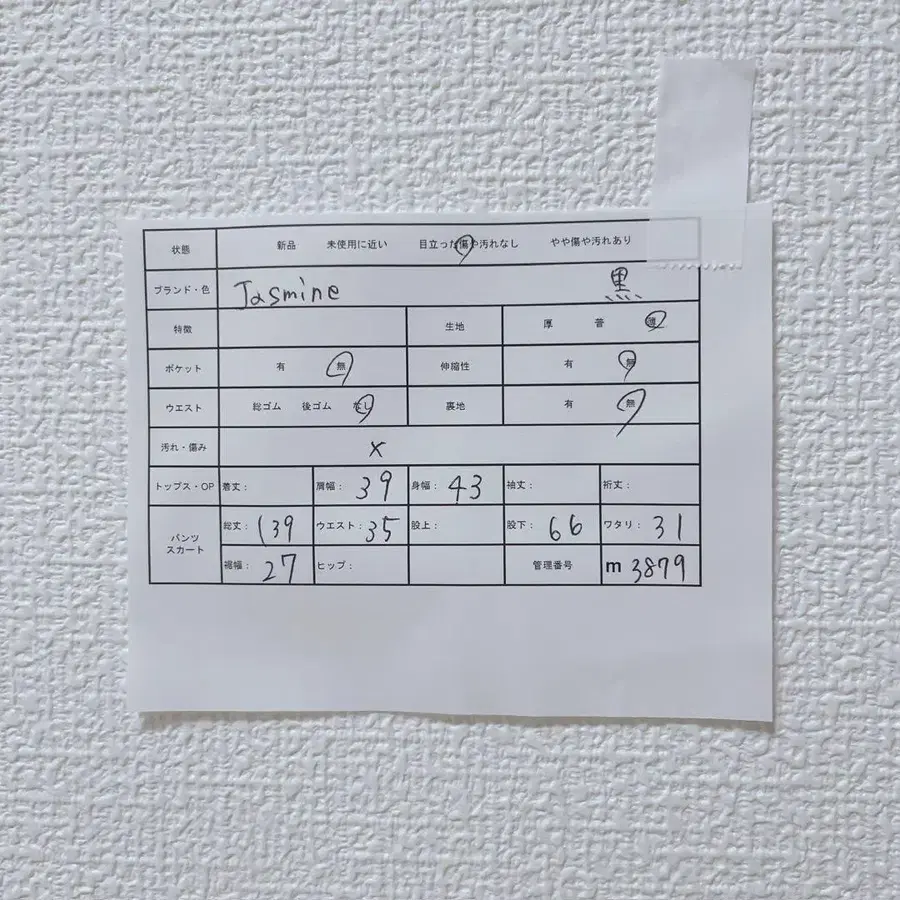 状態 新品 未使用に近い 目立った傷や汚れなし やや傷や汚れあり
ブランド・色 Jasmine 黒
特徴 生地 厚 普 薄
ポケット 有 無 伸縮性 有 無
ウエスト 総ゴム 後ゴム なし 裏地 有 無
汚れ・傷み ×
トップス・OP 着丈: 肩幅: 39 身幅: 43 袖丈: 裄丈:
パンツ スカート 総丈: 139 ウエスト: 35 股上: 股下: 66 ワタリ: 31
裾幅: 27 ヒップ: 管理番号 m 3879